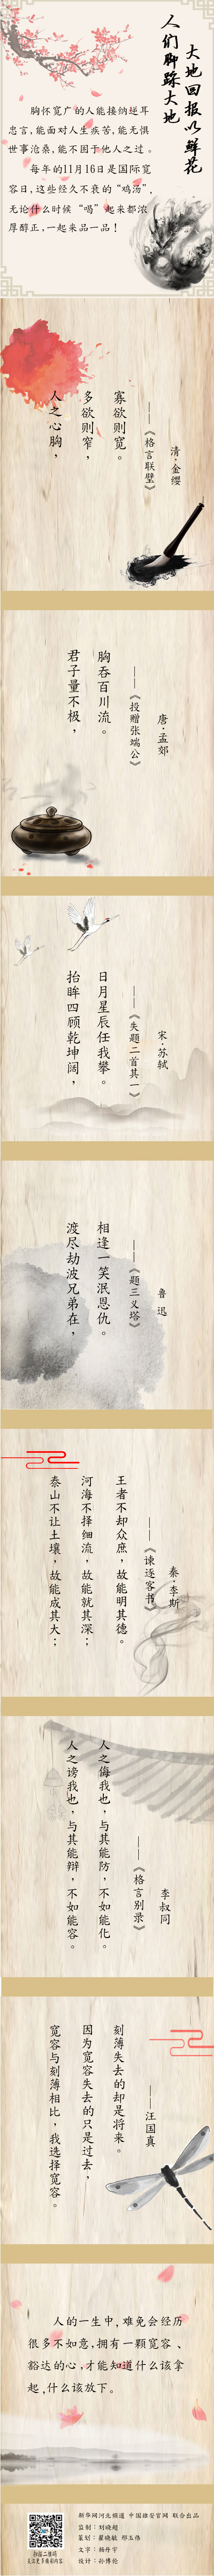 人们脚踩大地
大地回报以鲜花
胸怀宽广的人能接纳逆耳
忠言，能面对人生疾苦，能无惧
世事沧桑，能不困于他人之过。
每年的11月16日是国际宽
容日，这些经久不衰的“鸡汤”，
无论什么时候“喝”起来都浓
厚醇正，一起来品一品！
人之心胸，
多欲则窄，
寡欲则宽。
——《格言联璧》
清·金缨
君子量不极，
胸吞百川流。
——《投赠张端公》
唐·孟郊
抬眸四顾乾坤阔，
日月星辰任我攀。
——《失题二首其一》
宋·苏轼
渡尽劫波兄弟在，
相逢一笑泯恩仇。
——《题三义塔》
鲁迅
泰山不让土壤，故能成其大；
河海不择细流，故能就其深；
王者不却众庶，故能明其德。
——《谏逐客书》
秦·李斯
人之谤我也，与其能辩，不如能容。
人之侮我也，与其能防，不如能化。
——《格言别录》
李叔同
宽容与刻薄相比，我选择宽容。
因为宽容失去的只是过去，
刻薄失去的却是将来。
——汪国真
人的一生中，难免会经历
很多不如意，拥有一颗宽容、
豁达的心，才能知道什么该拿
起，什么该放下。
新华网河北频道 中国雄安官网 联合出品
监制：刘晓超
策划：翟晓敏 邢玉伟
文字：杨丹宁
设计：孙博伦
扫描二维码
关注更多精彩内容